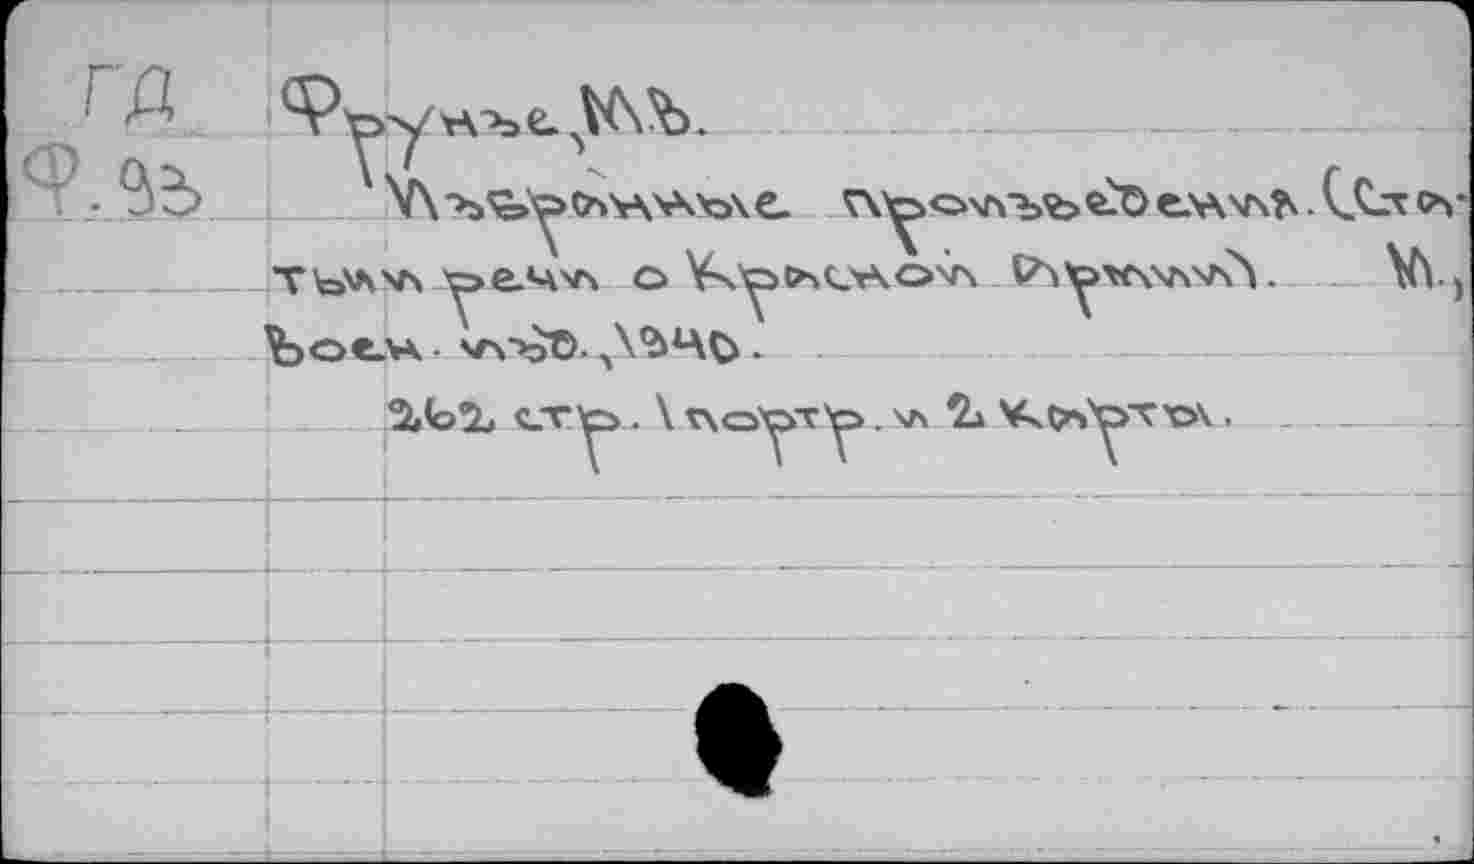 ГД
Ф.93
Фрунзе, М.В.
Избранные произведения. (Ста-
тьи и речи о Красной Армии). М.,
Воен. изд., 1940.
262 стр. 1 портр. и 2 карты.